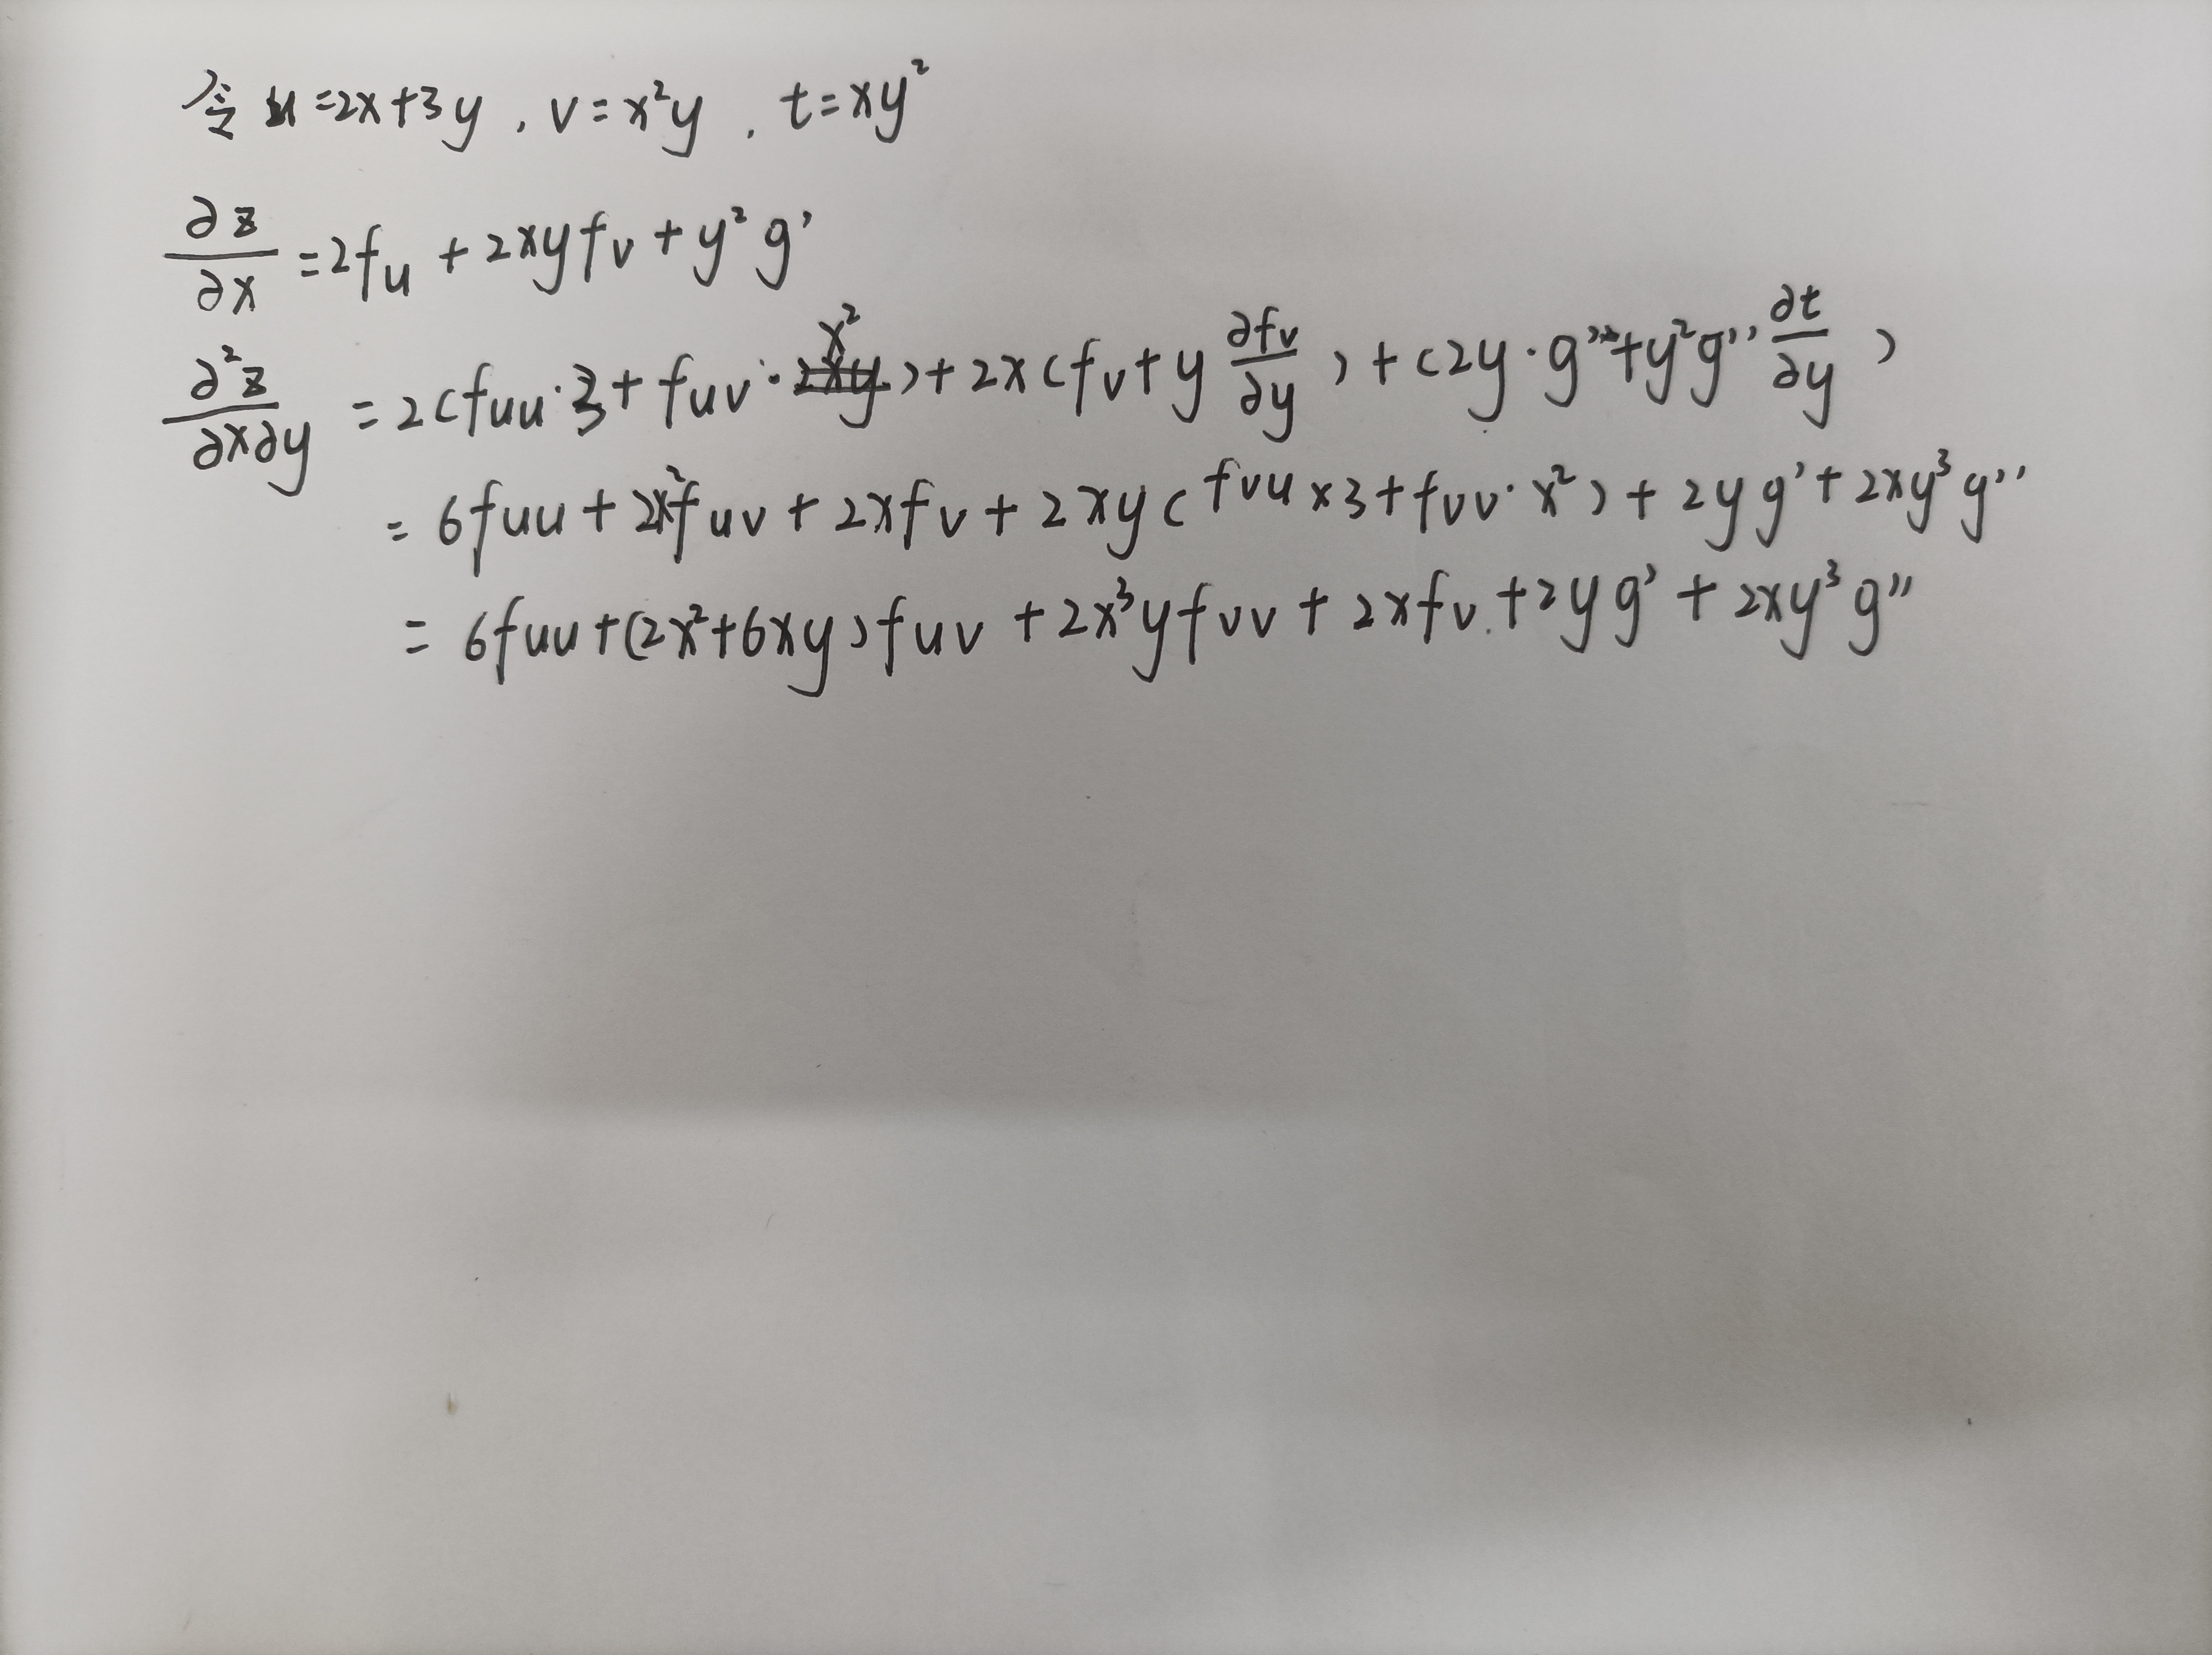 令 u=2x+3y , v=x²y , t=xy²
∂z/∂x =2fu + 2xyfv + y²g'
∂²z/∂x∂y = 2(fuu·3 + fuv·x²) + 2x(fv + y ∂fv/∂y) + (2y·g' + y²g'' ∂t/∂y)
= 6fuu + 2x²fuv + 2xfv + 2xy(fvu×3 + fvv·x²) + 2yg' + 2xy³g''
= 6fuu+(2x²+6xy)fuv + 2x³yfvv + 2xfv + 2yg' + 2xy³g''